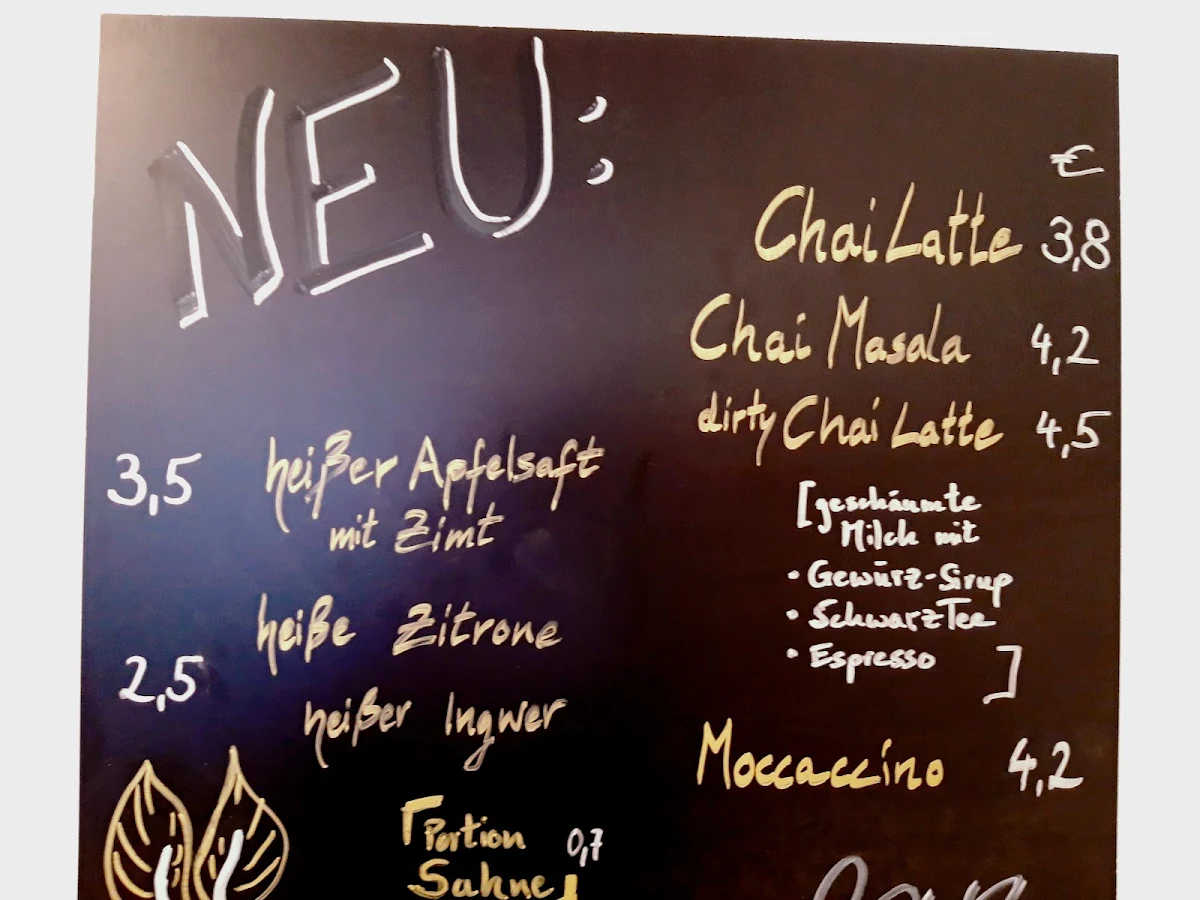 NEU:
€
Chai Latte 3,8
Chai Masala 4,2
dirty Chai Latte 4,5
[geschäumte
Milch mit
• Gewürz-Sirup
• SchwarzTee
• Espresso ]
Moccaccino 4,2
3,5 heißer Apfelsaft
mit Zimt
heiße Zitrone
2,5
heißer Ingwer
Portion 0,7
Sahne